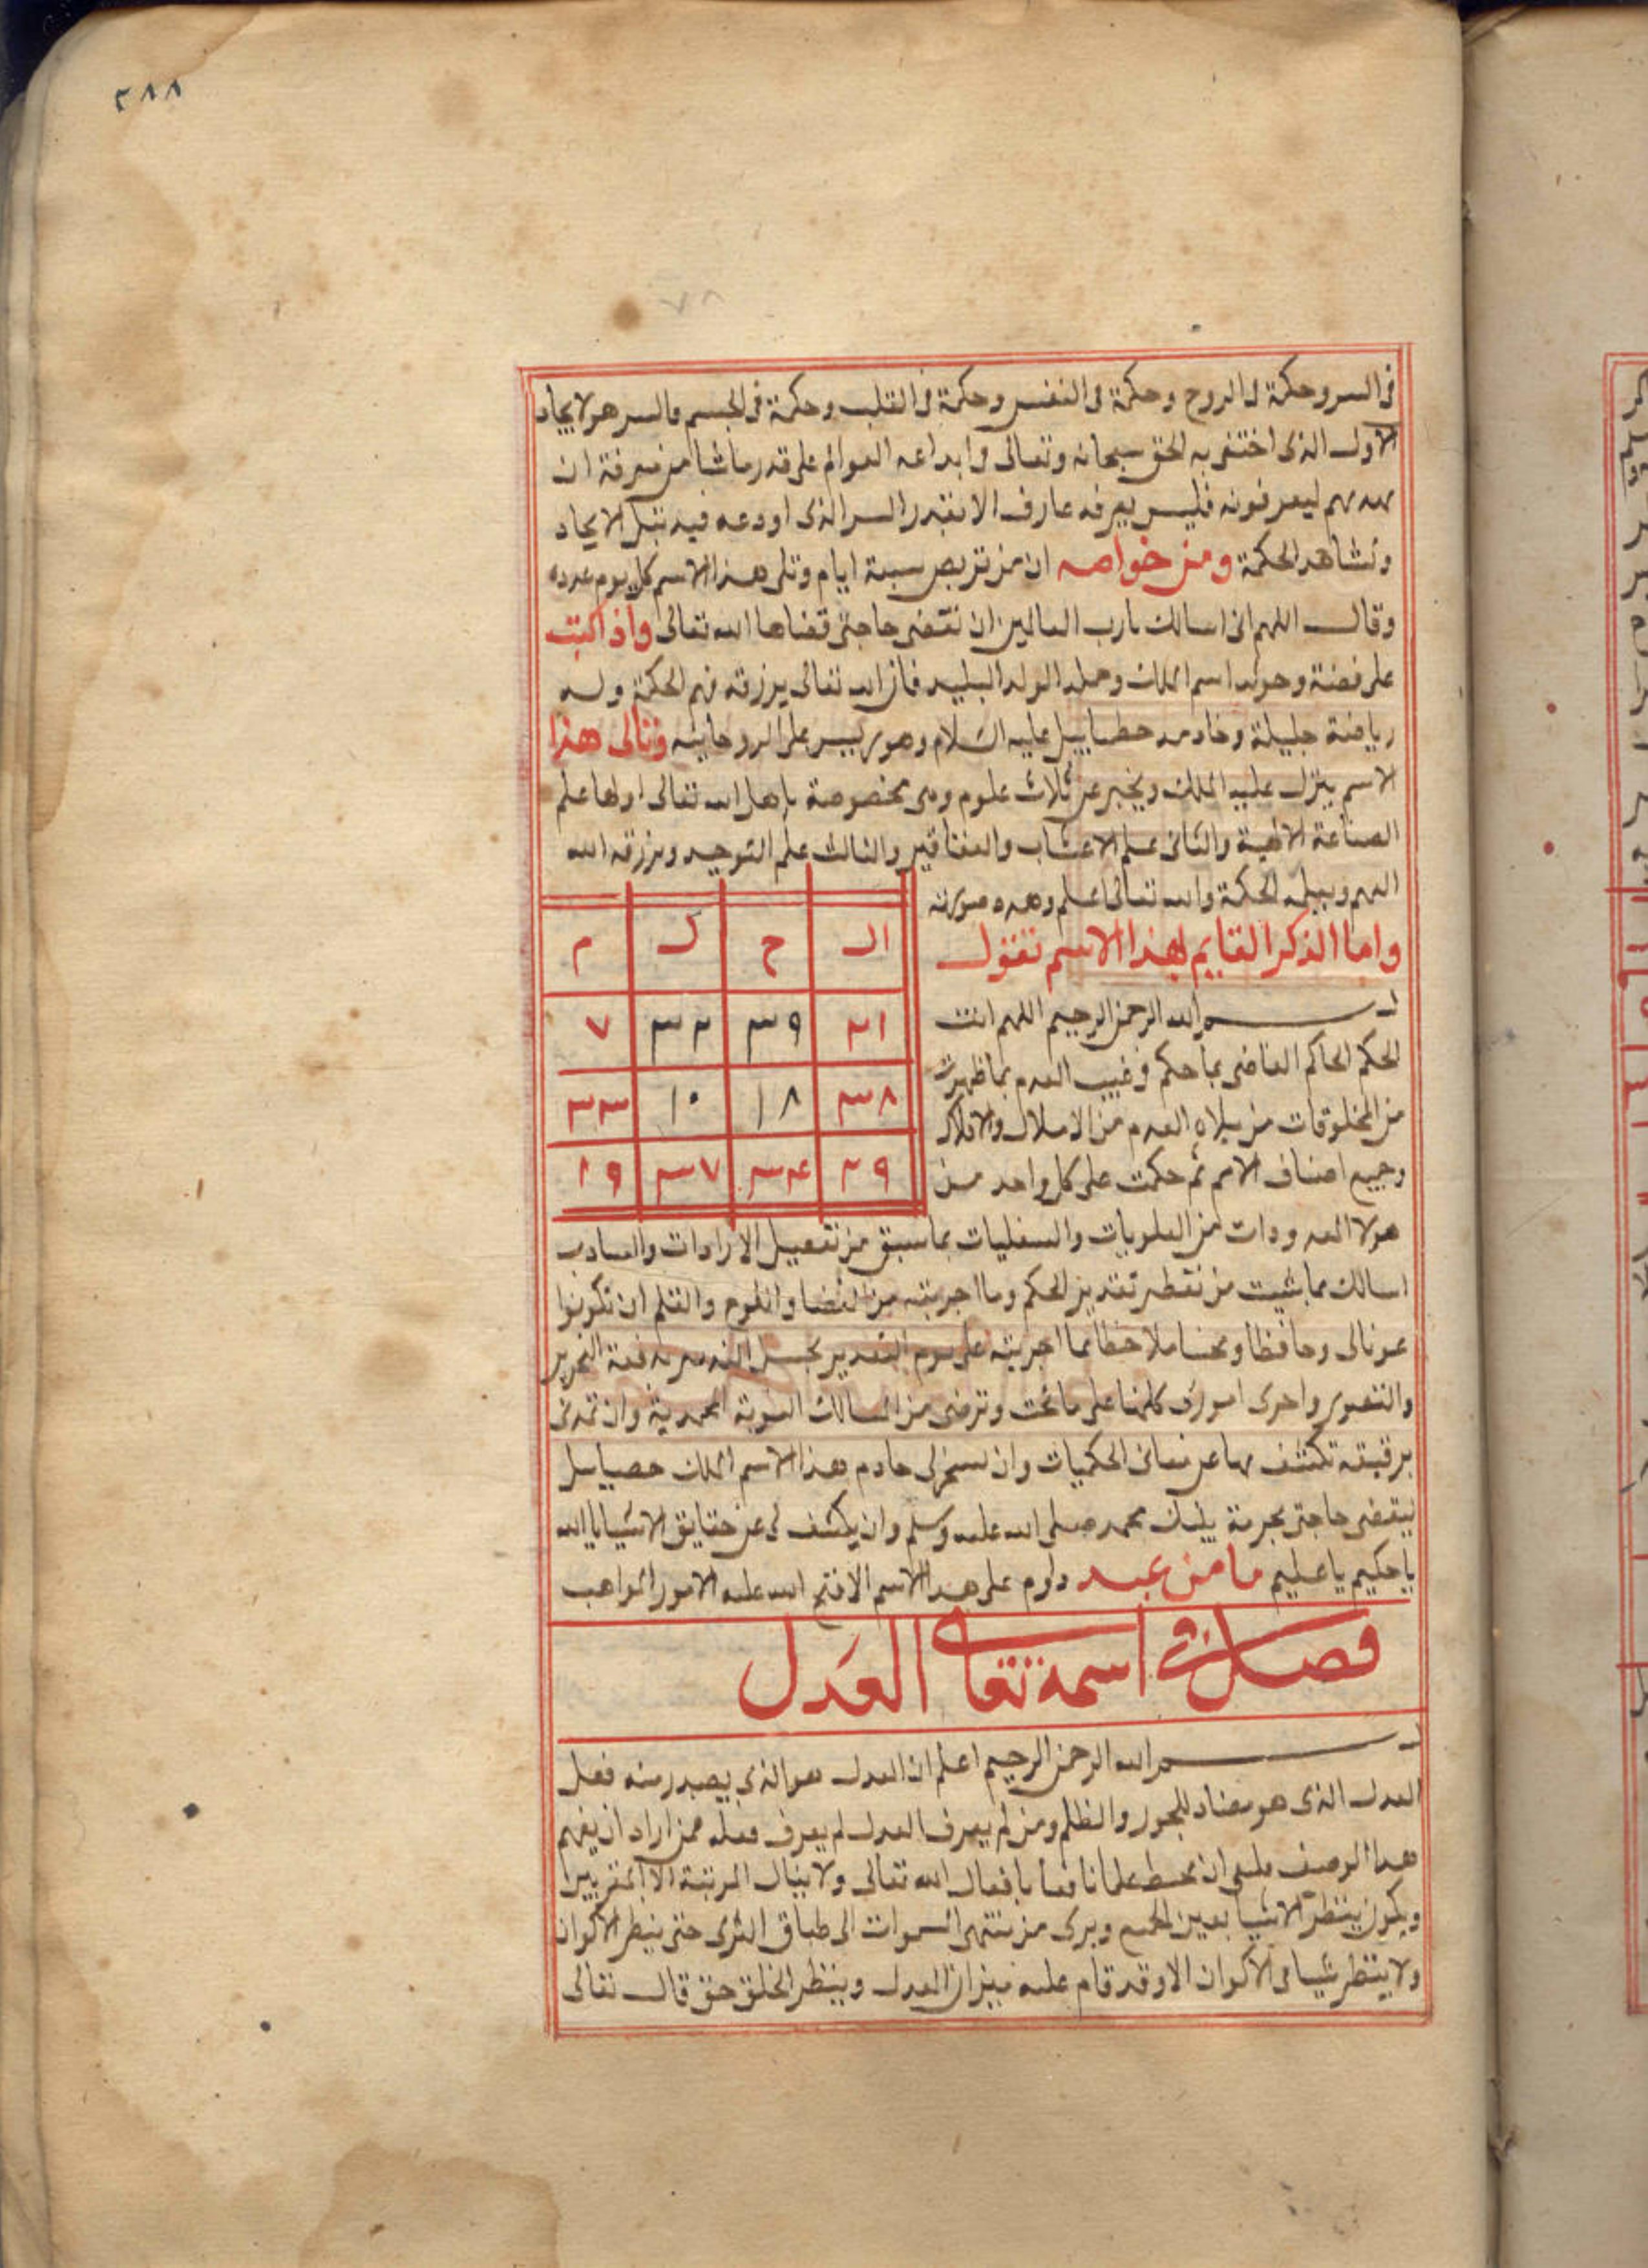 ٢٨٨
٧٨
في السر وحكمة في الروح وحكمة في النفس وحكمة في القلب وحكمة في الجسم فالسر هو لايجاد
الاول الذى اختفى به الحق سبحانه وتعالى وابداعه العوالم على قدر ما شا من معرفة ان
ليعرفونه فليس يعرفه عارف الا بقدر السر الذى اودعه فيه قبل الايجاد
وتشاهد الحكمة ومن خواصه ان من تربص سبعة ايام وتلى هذا الاسم كل يوم عدده
وقال اللهم انى اسالك يا رب العالمين ان تقضى حاجتى قضاها الله تعالى واذا كتب
على فضة وحوله اسم الملك وحمله الولد البليد فان الله تعالى يرزقه فهم الحكمة وله
رياضة جليلة وخادمه حطياييل عليه السلام وهو رييس على الروحانيه وتالى هذا
الاسم ينزل عليه الملك ويخبر عن ثلاث علوم وهى مخصوصة باهل الله تعالى اولها علم
الصناعة الالهية والثانى علم الاعشاب والعقاقير والثالث علم التوحيد ويرزقه الله
الفهم ويبلغه الحكمة والله تعالى اعلم وهذه صورته
ال ح ك م
٢١ ٣٩ ٣٢ ٧
٣٨ ١٨ ١٠ ٣٣
٢٩ ٣٤ ٣٧ ١٩
واما الذكر القايم لهذا الاسم تقول
بسم الله الرحمن الرحيم اللهم انت
الحكم الحاكم القاضى بما حكم فى غيب العدم بما ظهرت
من المخلوقات من العدم من الاملاك والافلاك
وجميع اصناف الامم ثم حكمت على كل واحد من
هولا المعدودات من العلويات والسفليات بما سبق من تفصيل الارادات
اسالك بما شيت من تقدير الحكم وما اجريته من القضا واللوح والقلم ان تكونوا
عونا لى وحافظا ملاحظا بما اجريته على التقدير
والتصوير واجرى امورى كلها على ما تحب وترضى من المسالك المحمدية وان تمدنى
برقيقة تكشف بها عن معانى الحكميات وان تسخر لى خادم هذا الاسم الملك
ليقضى حاجتى بحرمة نبيك محمد صلى الله عليه وسلم وان يكشف لى عن حقايق الاشيا يا الله
يا حكيم يا عليم ما من عبد داوم على هذا الاسم الا فتح الله عليه الامور المواهب
فصل فى اسمه تعالى العدل
بسم الله الرحمن الرحيم اعلم ان العدل هو الذى يصدر منه فعل
العدل الذى هو مضاد للجور والظلم ومن لم يعرف العدل لم يعرف فعله فمن اراد ان يفهم
هذا الوصف فلينبغى ان يحيط علما بافعال الله تعالى ولا ينال المرتبة الا المقربين
ويكون ينظر الاشيا بعين ويرى من منتهى السموات الى طباق الثرى حتى ينظر الاكوان
ولا ينظر شيا فى الاكوان الا وقد قام عليه ميزان العدل وينظر الخلق حق قال تعالى